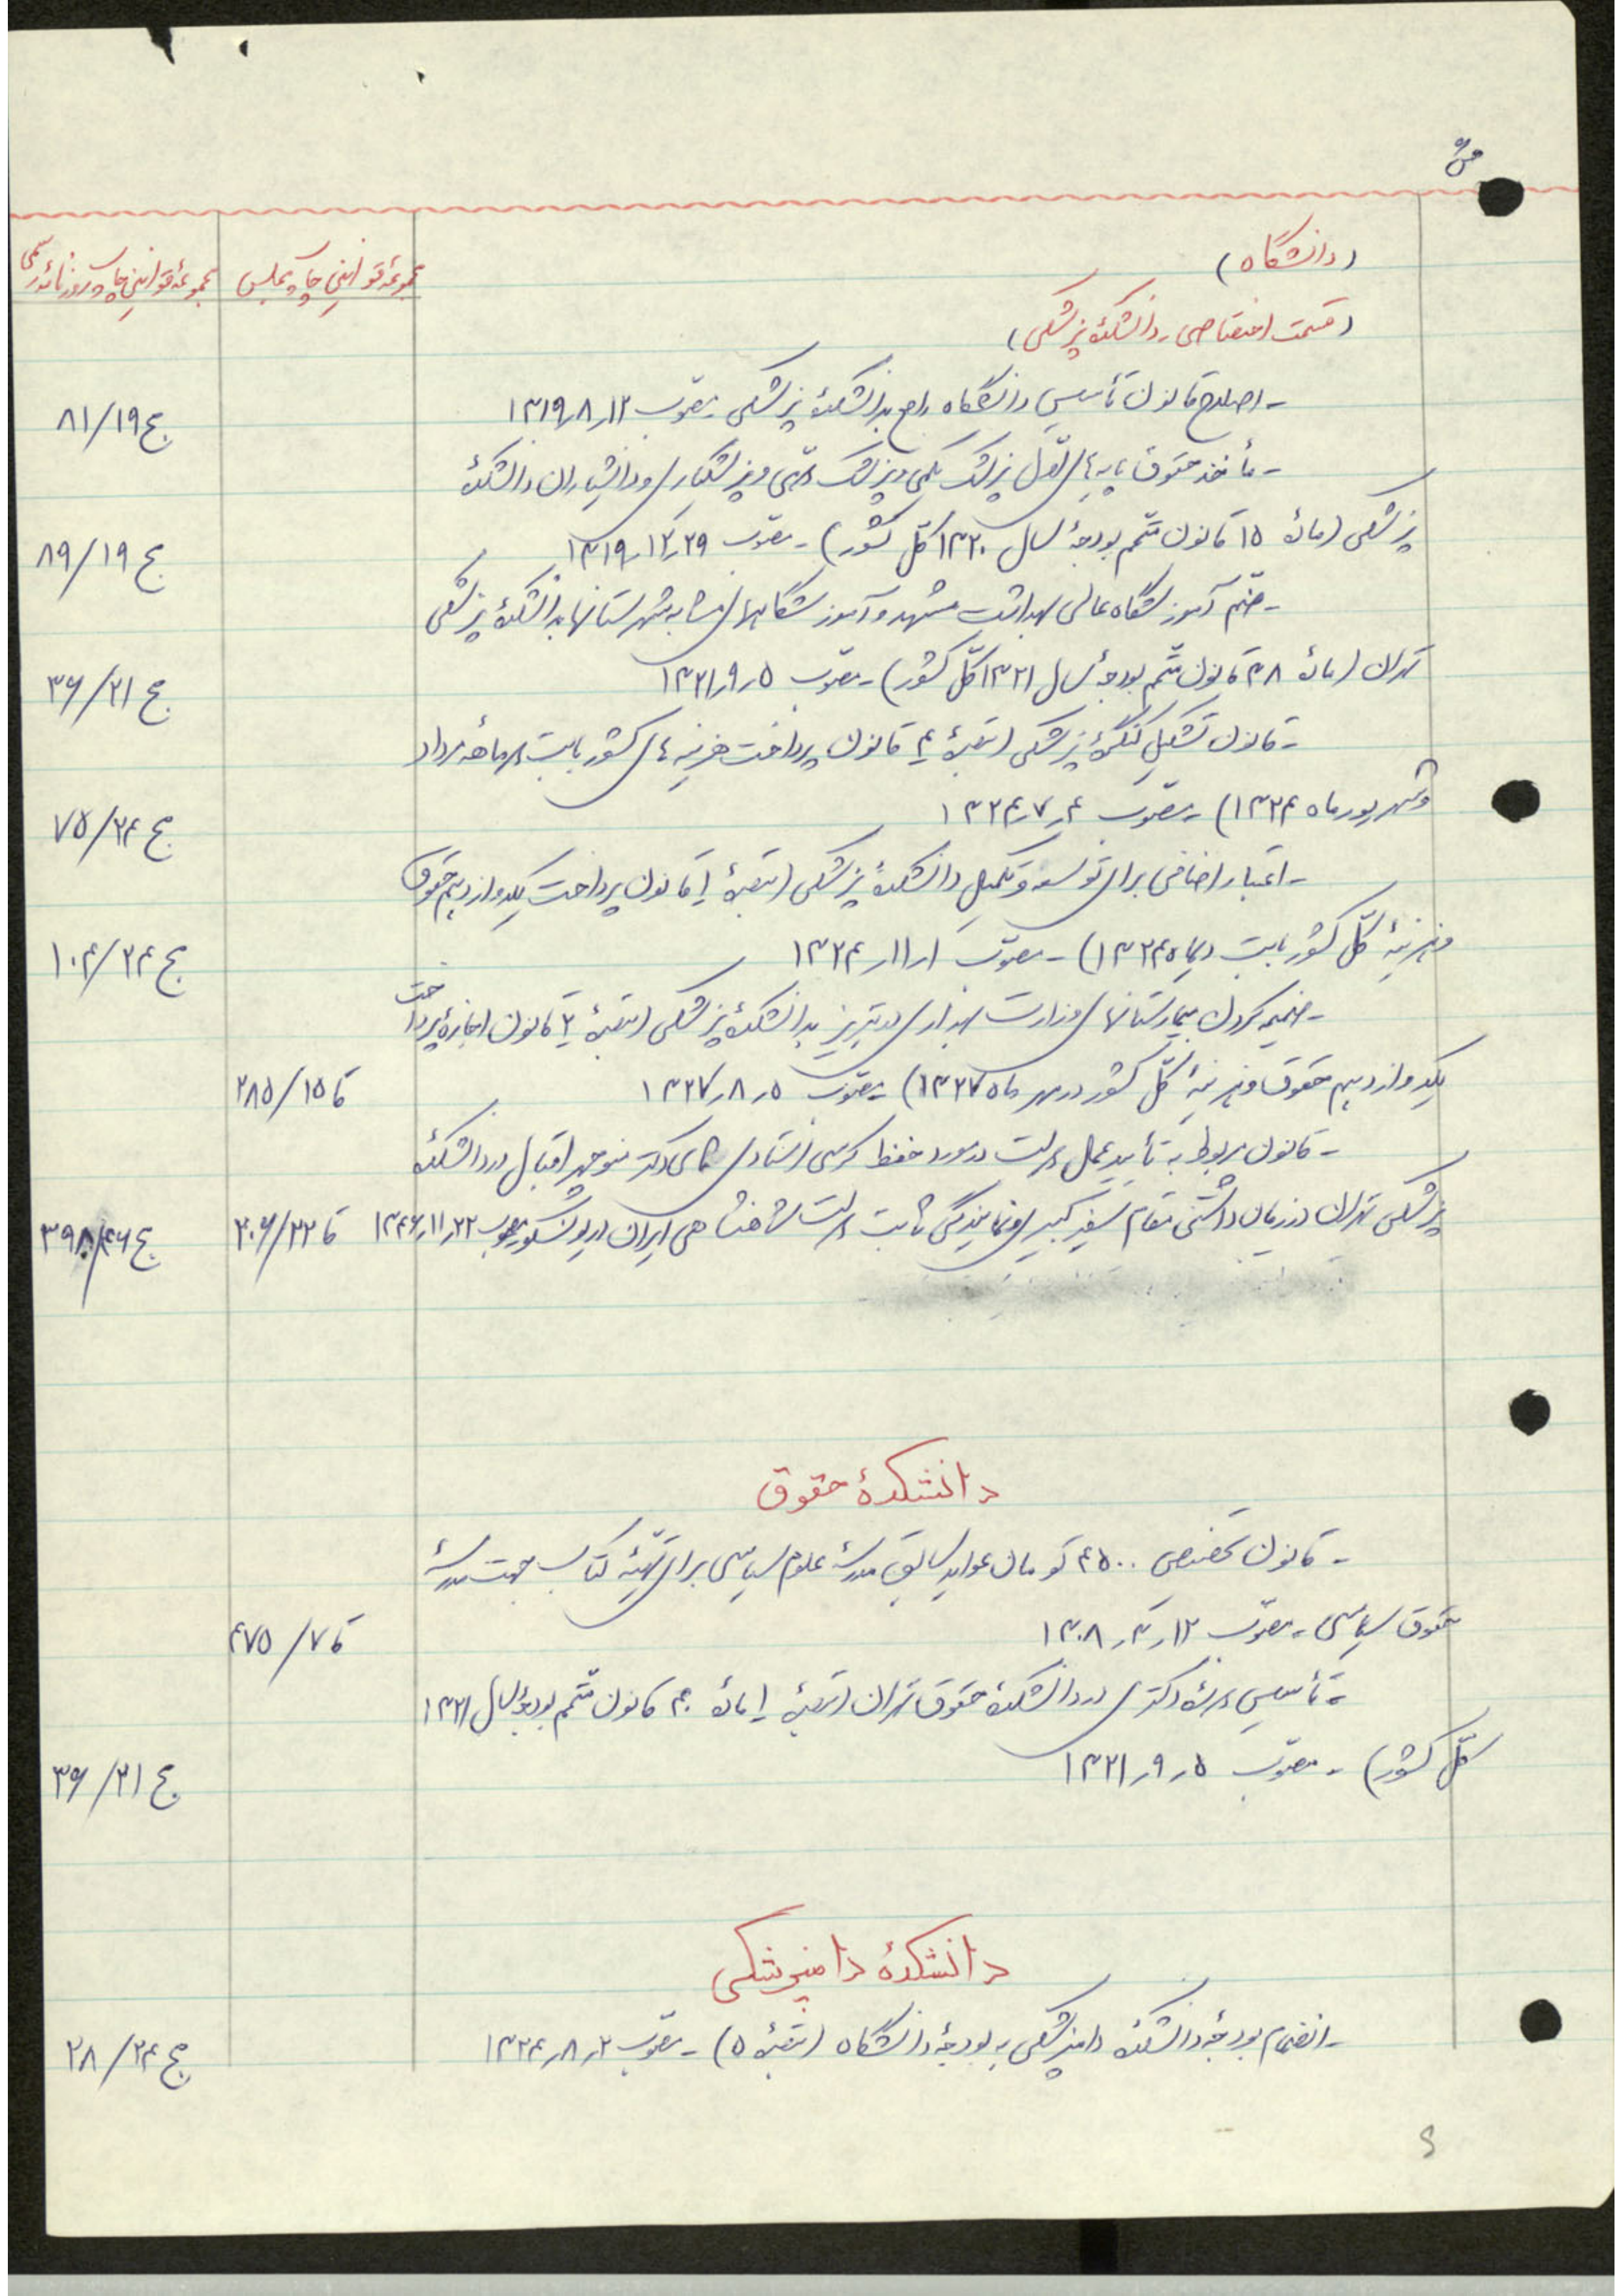 (دانشگاه)
مجموعهٔ قوانین چاپ مجلس
مجموعهٔ قوانین چاپ روزنامهٔ رسمی
(قسمت اختصاصی - دانشکدهٔ پزشکی)
- اصلاح قانون تأسیس دانشگاه راجع بدانشکدهٔ پزشکی مصوب ۱۲ر۸ر۱۳۱۹ ج ۸۱/۱۹
- مأخذ حقوق پایه‌های اول پزشک یکمی و پزشک دومی و پزشکیاری و دانشیاران دانشکدهٔ
پزشکی (مادهٔ ۱۵ قانون متمم بودجهٔ سال ۱۳۲۰ کل کشور) - مصوب ۲۹ر۱۲ر۱۳۱۹ ج ۸۹/۱۹
- ضم آموزشگاه عالی بهداشت مشهد و آموزشگاههای مشابه شهرستانها بدانشکدهٔ پزشکی
تهران (مادهٔ ۳۸ قانون متمم بودجهٔ سال ۱۳۲۱ کل کشور) - مصوب ۵ر۹ر۱۳۲۱ ج ۳۶/۲۱
- قانون تشکیل کنگرهٔ پزشکی (تبصرهٔ ۴ قانون پرداخت هزینه های کشور بابت دو ماهه مرداد
و شهریور ماه ۱۳۲۴) - مصوب ۴ر۷ر۱۳۲۴ ج ۷۵/۲۴
- اعتبار اضافی برای توسعه و تکمیل دانشکدهٔ پزشکی (تبصرهٔ ۱ قانون پرداخت یکدوازدهم حقوق
و هزینهٔ کل کشور بابت دیماه ۱۳۲۴) - مصوب ۱ر۱۱ر۱۳۲۴ ج ۱۰۴/۲۴
- ضمیمه کردن بیمارستانهای وزارت بهداری در تبریز بدانشکدهٔ پزشکی (تبصرهٔ ۲ قانون اجازهٔ پرداخت
یکدوازدهم حقوق و هزینهٔ کل کشور در مهر ماه ۱۳۲۷) مصوب ۵ر۸ر۱۳۲۷ قا ۲۸۵/۱۵
- قانون مربوط به تأیید عمل دولت در مورد حفظ کرسی استادی آقای دکتر منوچهر اقبال در دانشکدهٔ
پزشکی تهران در زمان داشتن مقام سفیر کبیری و نمایندگی ثابت دولت شاهنشاهی ایران در یونسکو مصوب ۲۲ر۱۱ر۱۳۴۶ قا ۲۰۶/۲۲ ج ۳۹۸/۴۶
دانشکدهٔ حقوق
- قانون تخصیص ۴۵۰۰ تومان عواید سابق مدرسهٔ علوم سیاسی برای تهیهٔ کتاب جهت مدرسهٔ
حقوق سیاسی - مصوب ۱۲ر۳ر۱۳۰۸ قا ۴۷۵/۷
- تأسیس دورهٔ دکتری در دانشکدهٔ حقوق تهران (تبصرهٔ ۱ مادهٔ ۴۰ قانون متمم بودجهٔ سال ۱۳۲۱
کل کشور) - مصوب ۵ر۹ر۱۳۲۱ ج ۳۶/۲۱
دانشکدهٔ دامپزشکی
- انضمام بودجهٔ دانشکدهٔ دامپزشکی به بودجهٔ دانشگاه (تبصرهٔ ۵) - مصوب ۲ر۸ر۱۳۲۴ ج ۲۸/۲۴